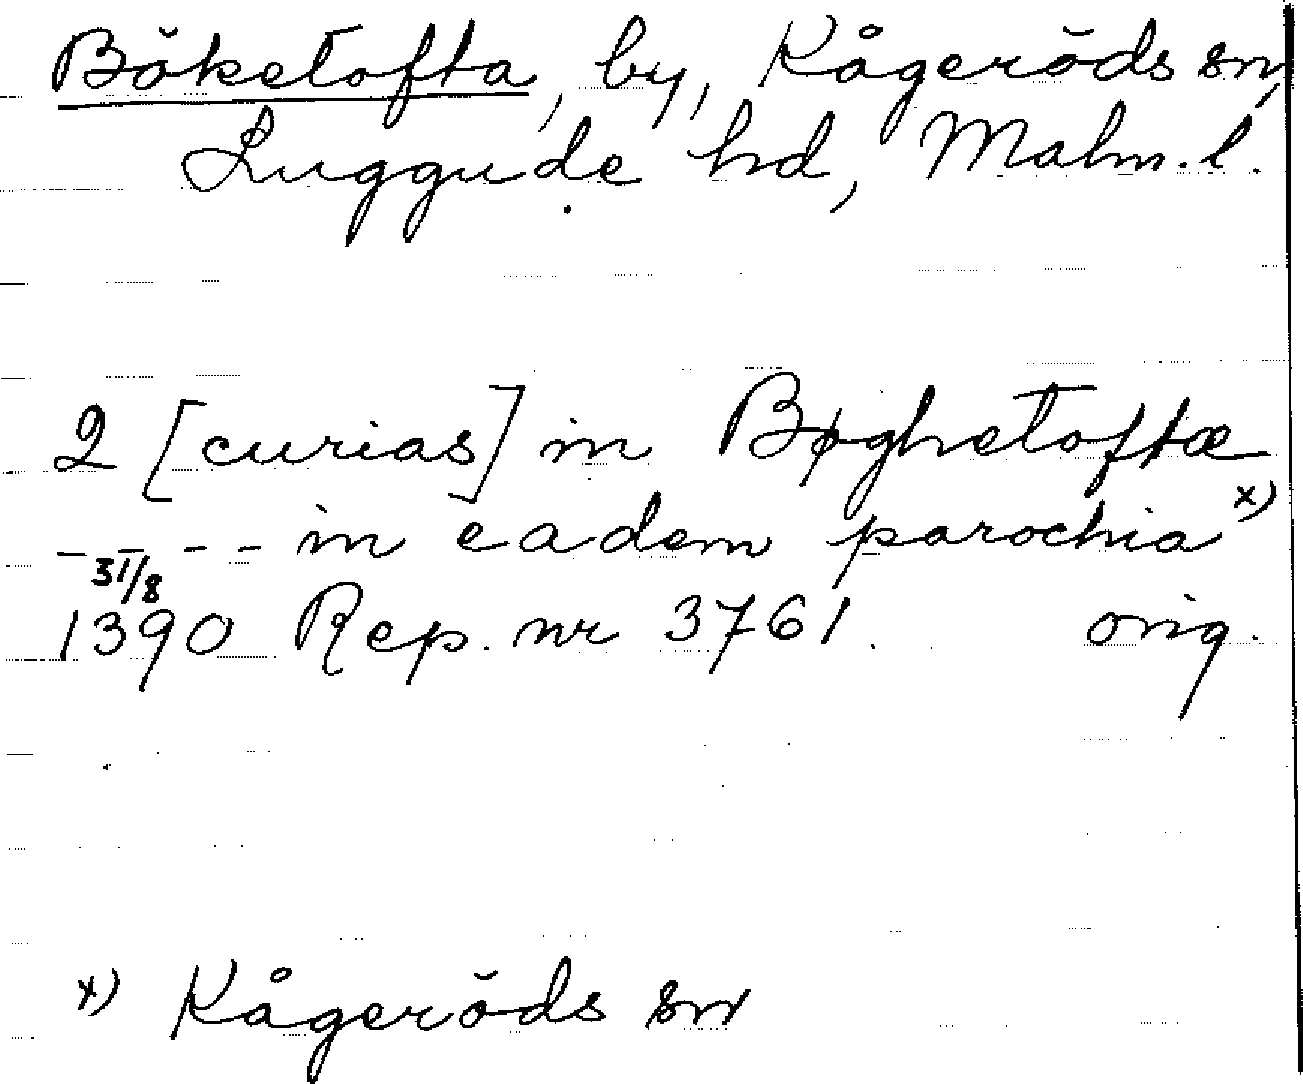 Böketofta, by, Kågeröds sn,
Luggude hd, Malm. l.
2 [curias] in Bøghetoftæ
---- in eadem parochia x)
31/8
1390 Rep. nr 3761. orig.
x) Kågeröds sn